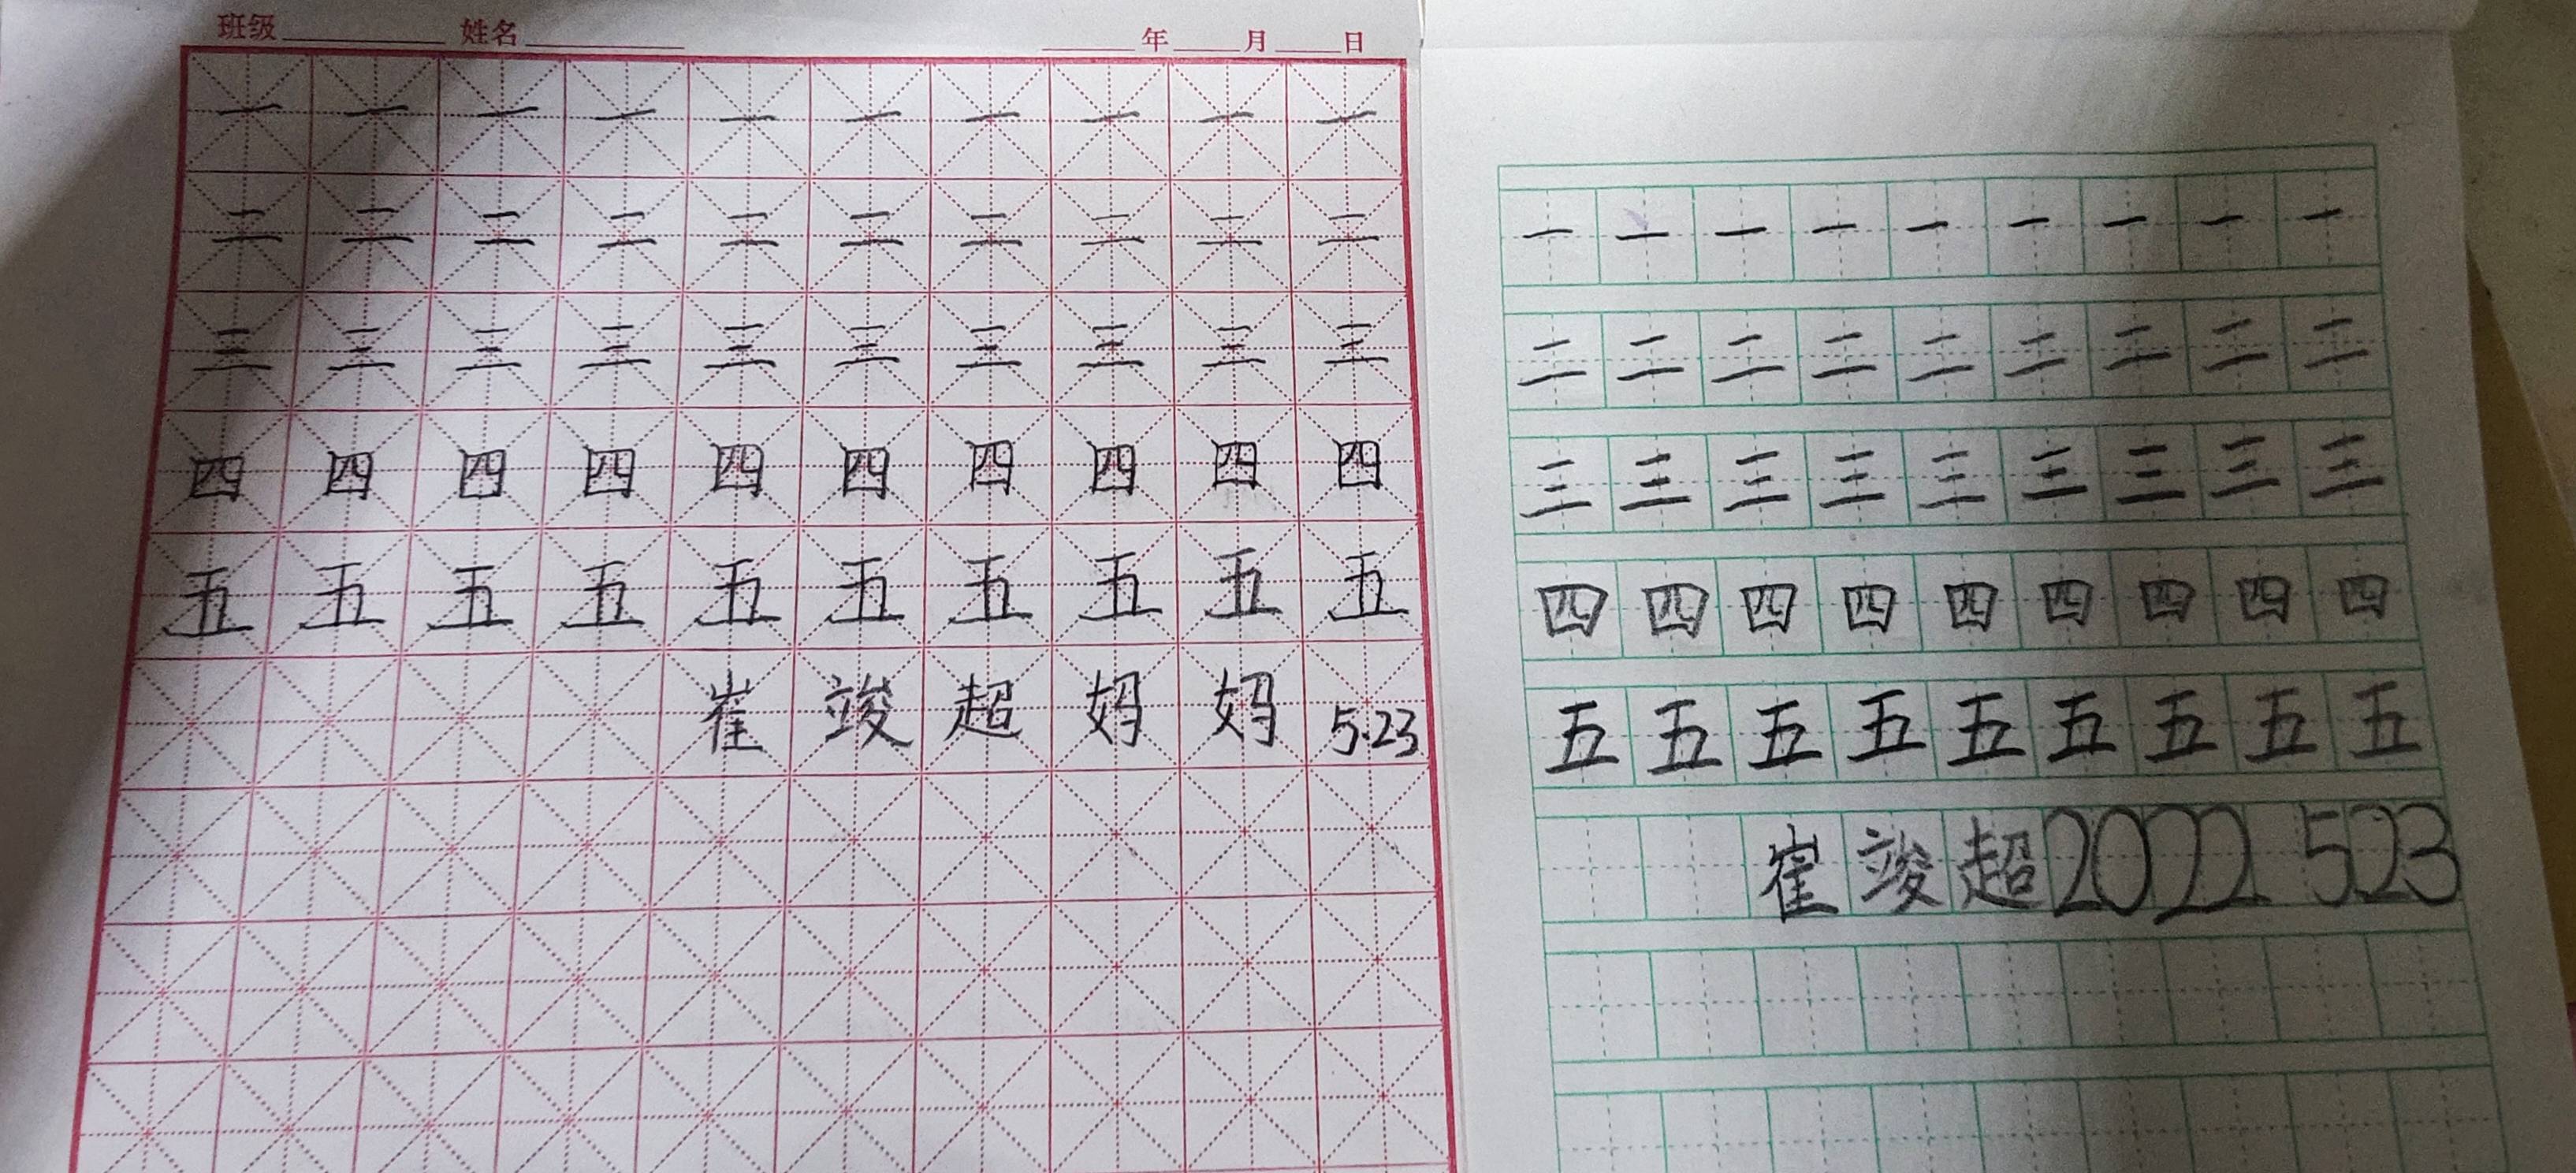 班级 姓名 年 月 日
一 一 一 一 一 一 一 一 一 一
二 二 二 二 二 二 二 二 二 二
三 三 三 三 三 三 三 三 三 三
四 四 四 四 四 四 四 四 四 四
五 五 五 五 五 五 五 五 五 五
崔 竣 超 妈 妈 5.23
一 一 一 一 一 一 一 一 一
二 二 二 二 二 二 二 二 二
三 三 三 三 三 三 三 三 三
四 四 四 四 四 四 四 四 四
五 五 五 五 五 五 五 五 五
崔 竣 超 2022. 5.23